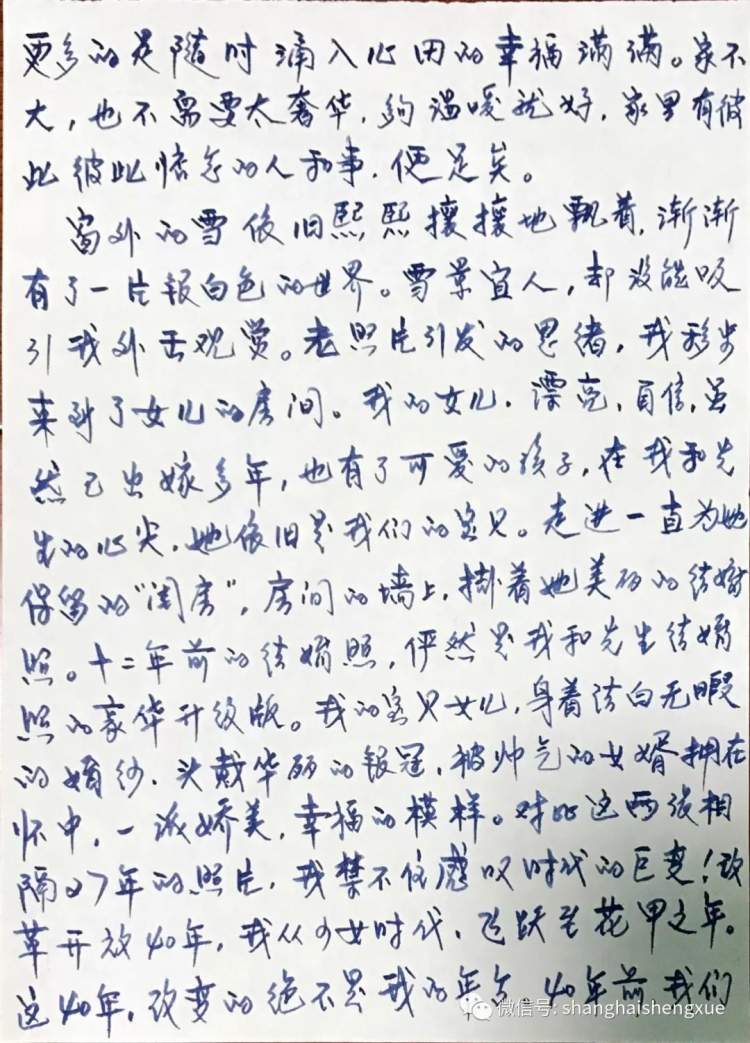 更多的是随时涌入心田的幸福满满。家不
大，也不需要太奢华，够温暖就好，家里有彼
此彼此惦念的人和事，便足矣。
窗外的雪依旧熙熙攘攘地飘着，渐渐
有了一片银白色的世界。雪景宜人，却没能吸
引我外出观赏。老照片引发的思绪，我移步
来到了女儿的房间。我的女儿，漂亮，自信，虽
然已出嫁多年，也有了可爱的孩子，在我和先
生的心尖，她依旧是我们的宝贝。走进一直为她
保留的“闺房”，房间的墙上，挂着她美丽的结婚
照。十二年前的结婚照，俨然是我和先生结婚
照的豪华升级版。我的宝贝女儿，身着洁白无暇
的婚纱，头戴华丽的银冠，被帅气的女婿拥在
怀中，一派娇美，幸福的模样。对比这两张相
隔27年的照片，我禁不住感叹时代的巨变！改
革开放40年，我从少女时代，飞跃至花甲之年。
这40年，改变的绝不是我的年令，40年前我们
微信号: shanghaishengxue